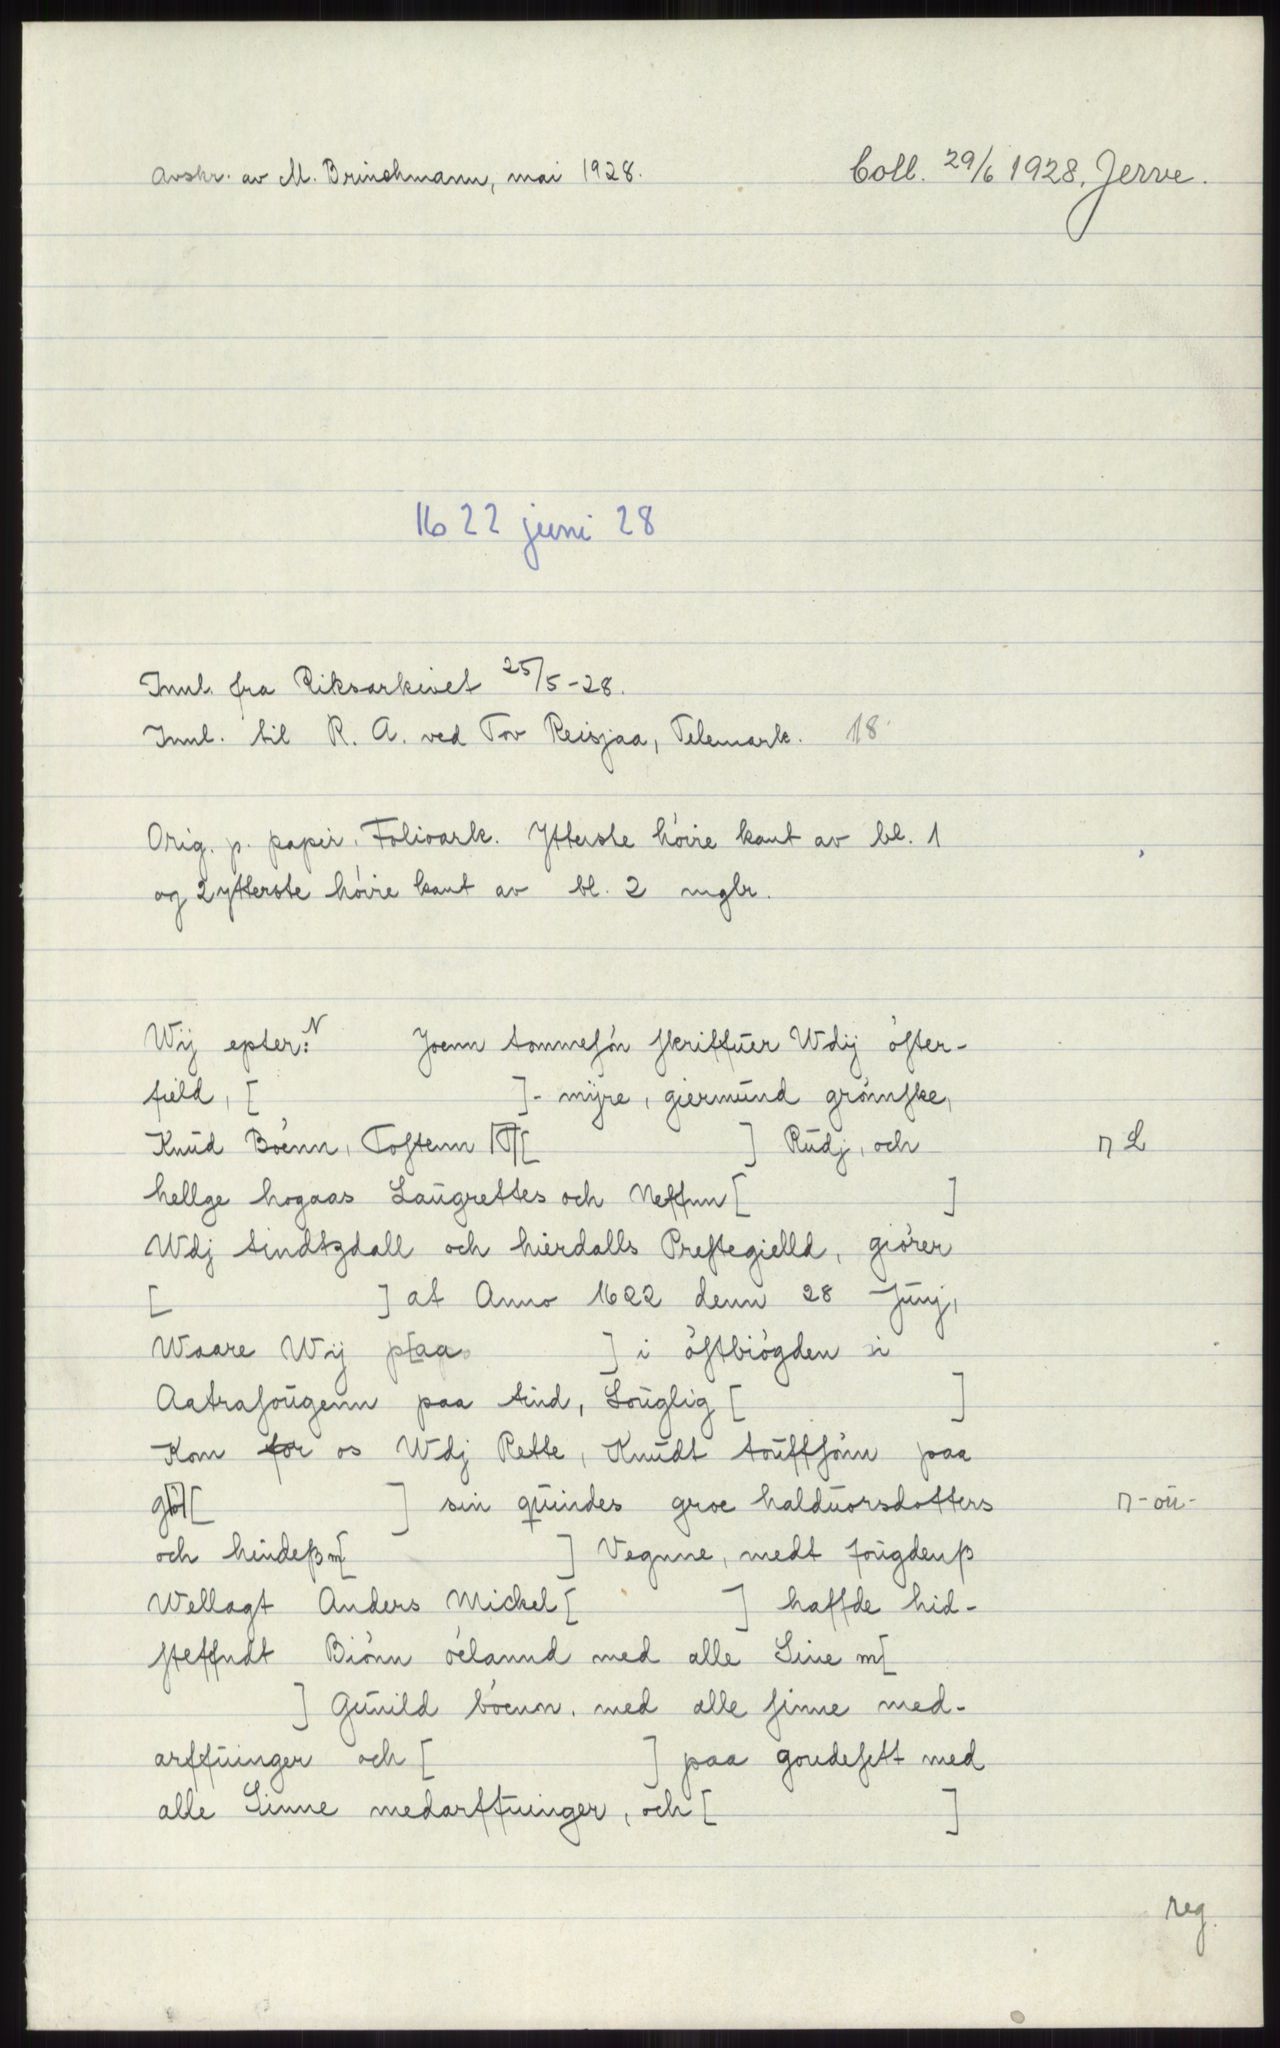 Avskr. av M. Brinchmann, mai 1928.
Coll. 29/6 1928, Jerve.
1622 juni 28
Innl. fra Riksarkivet 25/5-28.
Innl. til R. A. ved Tov Reisjaa, Telemark. 18
Orig. p. papir. Folioark. Ytterste høire kant av bl. 1
og 2 ytterste høire kant av bl. 2 mglr.
Wij epter:N Joenn tommesøn skriffuer Wdij øster-
field, [ ]- myre, giermund grømske,
Knud Bøenn, Tostenn [ ] Rudj, och
⊓ L
hellge hogaas Laugrettes och Neffnn [ ]
Wdj tindtzdall och hierdalls Prestegielld, giører
[ ] at Anno 1622 denn 28 Junj,
Waare Wij p[aa ] i østbiøgden i
Aatrasougenn paa tind, Louglig [ ]
Kom for os Wdj Rette, Knudt touffsønn paa
gø[ ] sin quindes groe halduorsdotters
⊓ -ou-
och hindeß m[ ] Vegnne, medt fougdenß
Wellagt Anders Mickel[ ] haffde hid-
steffndt Biønn øelannd med alle Sine m[
] Gunild bøenn, med alle sinne med-
arffuinger och [ ] paa goudesett med
alle Sinne medarffuinger, och [ ]
reg.